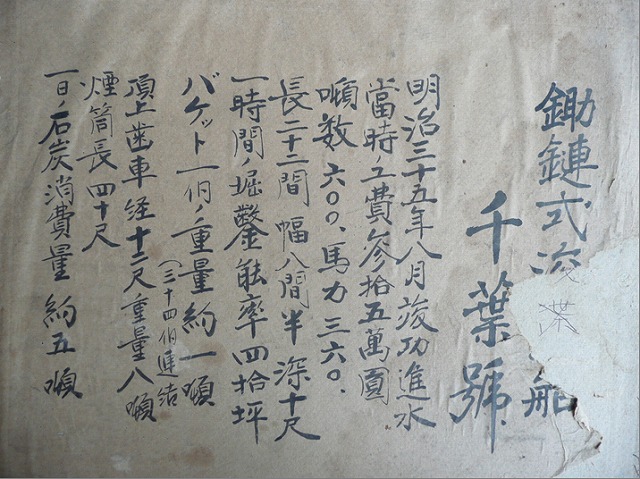 鋤鏈式浚渫船
千葉號
明治三十五年八月竣功進水
當時ノ工費參拾五萬圓
噸数六〇〇、馬力三六〇、
長二十二間幅八間半深十尺
一時間ノ堀鑿能率四拾坪
バケット一個ノ重量約一噸
(三十四個連結)
頂上歯車経十二尺重量八噸
煙筒長四十尺
一日ノ石炭消費量約五噸